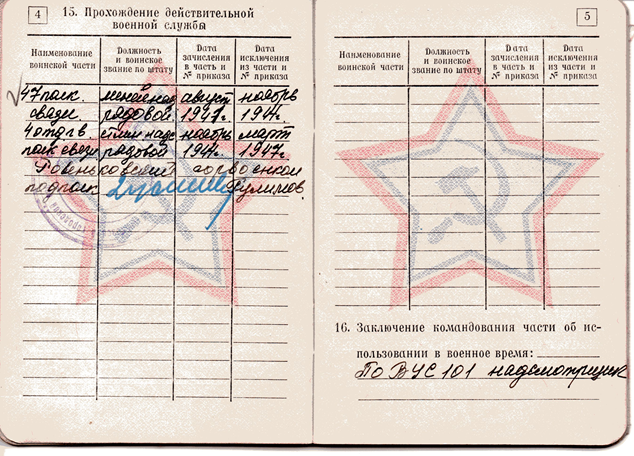 4
15. Прохождение действительной
военной службы
Наименование воинской части
Должность и воинское звание по штату
Дата зачисления в часть и № приказа
Дата исключения из части и № приказа
47 полк. линейный август ноябрь
связи рядовой 1941г. 194 г.
4 отд гв. ноябрь март
полк связи рядовой 194 г. 1947г.
Ровеньковский горвоенком
подполк Фулимов
5
Наименование воинской части
Должность и воинское звание по штату
Дата зачисления в часть и № приказа
Дата исключения из части и № приказа
16. Заключение командования части об ис-
пользовании в военное время:
По ВУС 101 надсмотрщик